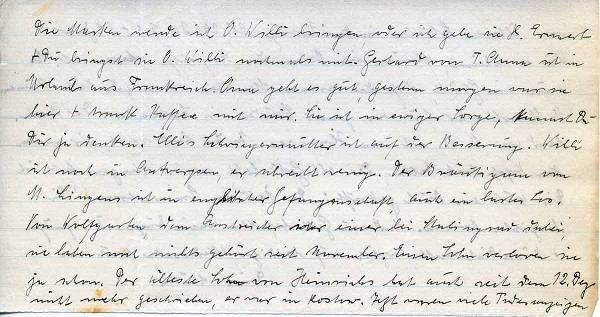 Die Marken werde ich O. Willi bringen, oder ich gebe sie K. Ermert
+ Du bringst sie O. Willi nochmals mit. Gerhard von T. Anna ist in
Urlaub aus Frankreich. Oma geht es gut, gestern morgen war sie
hier + trank Kaffee mit mir. Sie ist in ewiger Sorge, kannst Du
Dir ja denken. Ellis Schwiegermutter ist auf der Besserung. Willi
ist noch in Antwerpen, er schreibt wenig. Der Bräutigam von
M. Lingens ist in englischer Gefangenschaft, auch ein hartes Los.
Von Wolfgarten, dem Anstreicher war einer bei Stalingrad dabei,
sie haben noch nichts gehört seit November. Einen Sohn verloren sie
ja schon. Der älteste Sohn von Heinrichs hat auch seit dem 12. Dez
nicht mehr geschrieben, er war in Rostow. Jetzt waren viele Todesanzeigen